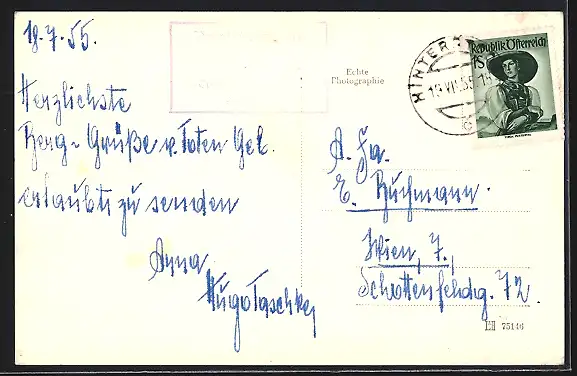 18.7.55.
Herzlichste
Berg-Grüße v. Toten Geb.
erlaubt zu senden
Anna
Hugo Taschke
Echte
Photographie
HINTER
Republik Österreich
1S
A. Fa.
E. Buchmann.
Wien, 7.,
Schottenfeldg. 72.
75146